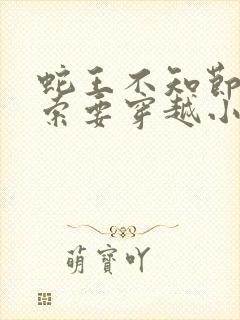 蛇王不知节
索要穿越小
萌宝吖